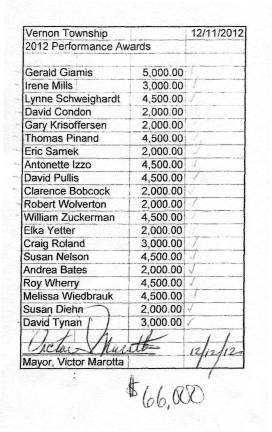 Vernon Township 12/11/2012
2012 Performance Awards
Gerald Giamis 5,000.00
Irene Mills 3,000.00
Lynne Schweighardt 4,500.00
David Condon 2,000.00
Gary Krisoffersen 2,000.00
Thomas Pinand 4,500.00
Eric Samek 2,000.00
Antonette Izzo 4,500.00
David Pullis 4,500.00
Clarence Bobcock 2,000.00
Robert Wolverton 2,000.00
William Zuckerman 4,500.00
Elka Yetter 2,000.00
Craig Roland 3,000.00
Susan Nelson 4,500.00
Andrea Bates 2,000.00
Roy Wherry 4,500.00
Melissa Wiedbrauk 4,500.00
Susan Diehn 2,000.00
David Tynan 3,000.00
Victor Marotta 12/12/12
Mayor, Victor Marotta
$66,000